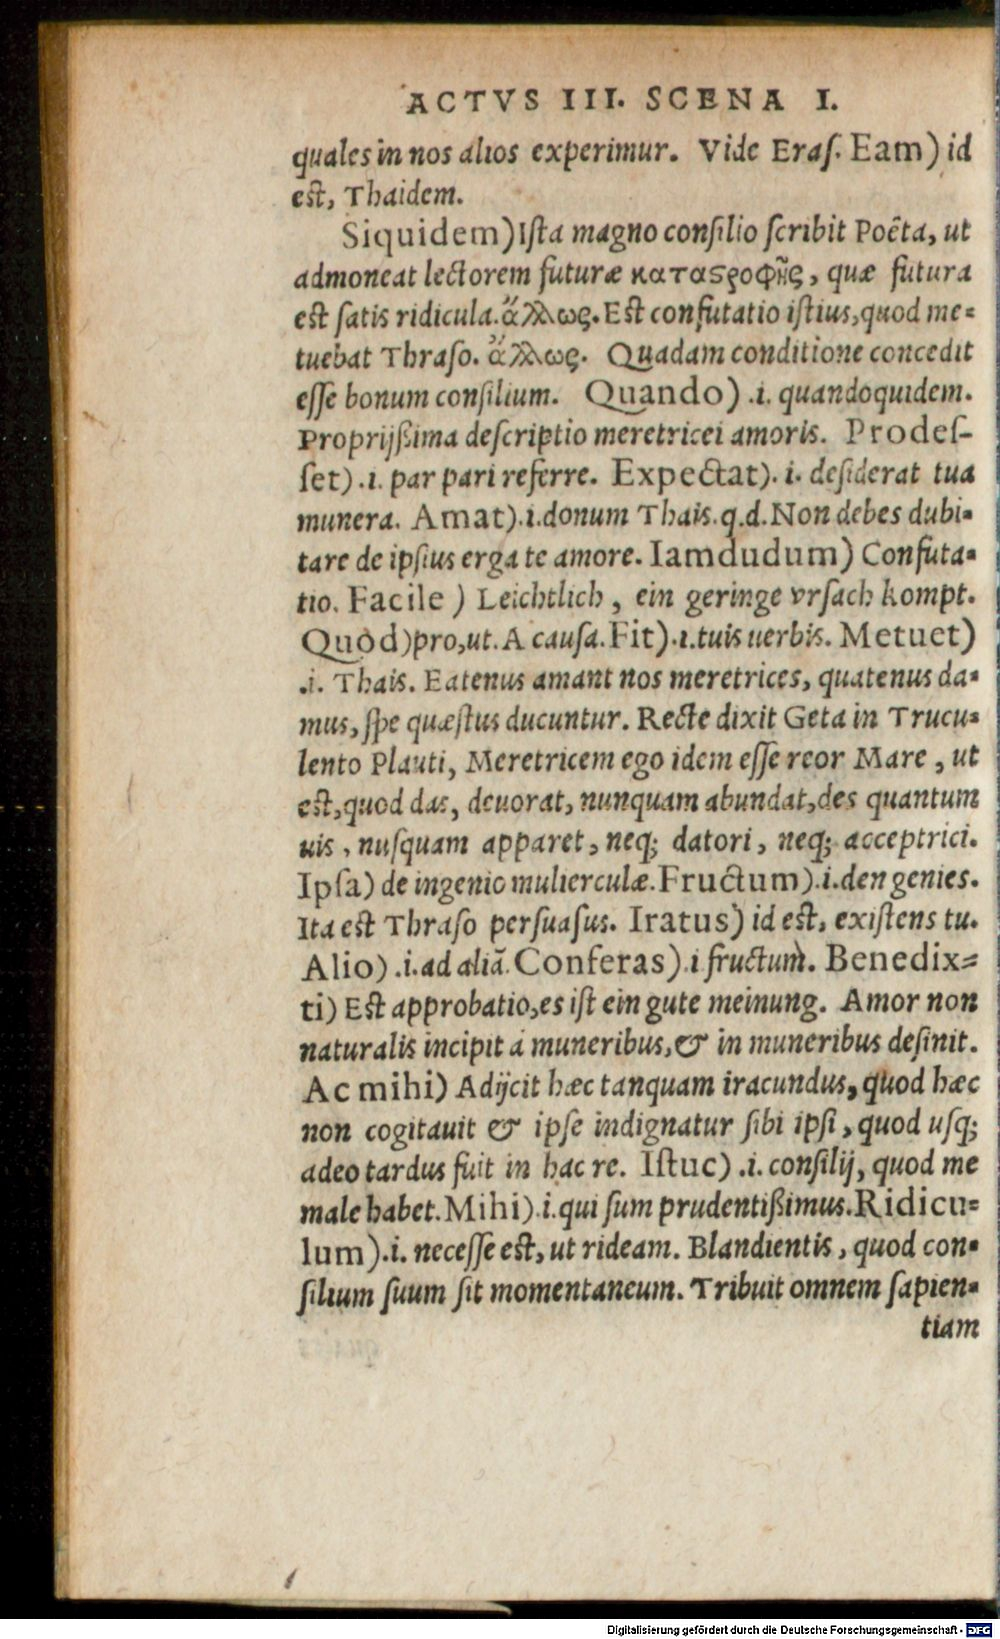 ACTVS III. SCENA I.
quales in nos alios experimur. Vide Eraſ. Eam) id
eſt, Thaidem.
Siquidem) Iſta magno conſilio ſcribit Poëta, ut
admoneat lectorem futuræ καταςροφῆς, quæ futura
eſt ſatis ridicula. ἄλλως. Eſt confutatio iſtius, quod me=
tuebat Thraſo. ἄλλως. Quadam conditione concedit
eſſe bonum conſilium. Quando) .i. quandoquidem.
Proprijßima deſcriptio meretricei amoris. Prodeſ-
ſet) .i. par pari referre. Expectat). i. deſiderat tua
munera. Amat).i.donum Thais.q.d. Non debes dubi=
tare de ipſius erga te amore. Iamdudum) Confuta=
tio. Facile ) Leichtlich, ein geringe vrſach kompt.
Quòd)pro,ut. A cauſa. Fit).i.tuis uerbis. Metuet)
.i. Thais. Eatenus amant nos meretrices, quatenus da=
mus, ſpe quæſtus ducuntur. Recte dixit Geta in Trucu=
lento Plauti, Meretricem ego idem eſſe reor Mare, ut
eſt, quod das, deuorat, nunquam abundat, des quantum
uis, nuſquam apparet, neq; datori, neq; acceptrici.
Ipſa) de ingenio mulierculæ. Fructum).i.den genies.
Ita eſt Thraſo perſuaſus. Iratus) id eſt, exiſtens tu.
Alio) .i. ad aliā. Conferas).i fructum. Benedix=
ti) Eſt approbatio, es iſt ein gute meinung. Amor non
naturalis incipit à muneribus, & in muneribus deſinit.
Ac mihi) Adijcit hæc tanquam iracundus, quod hæc
non cogitauit & ipſe indignatur ſibi ipſi, quod uſq;
adeo tardus fuit in hac re. Iſtuc) .i. conſilij, quod me
male habet. Mihi).i. qui ſum prudentißimus. Ridicu=
lum).i. neceſſe eſt, ut rideam. Blandientis, quod con=
ſilium ſuum ſit momentaneum. Tribuit omnem ſapien=
tiam
Digitalisierung gefördert durch die Deutsche Forschungsgemeinschaft - DFG